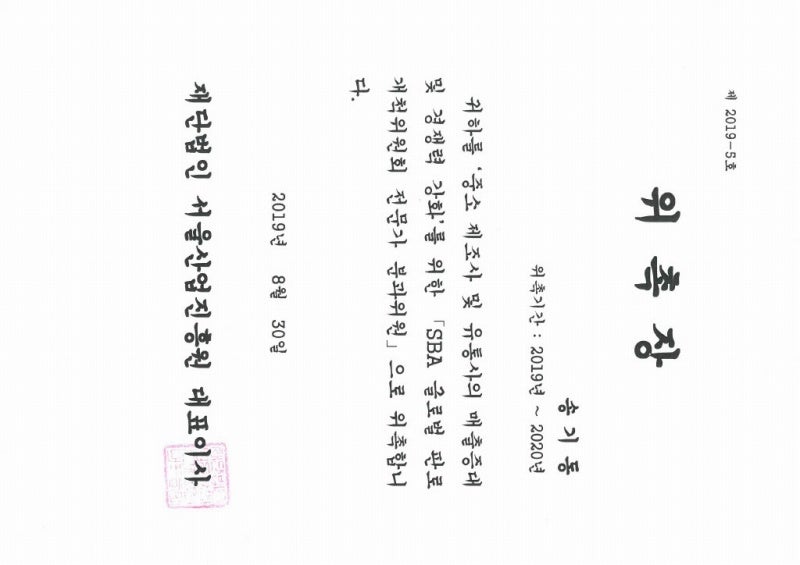 제 2019-5호
위 촉 장
송 기 동
위촉기간 : 2019년 ~ 2020년
귀하를 '중소 제조사 및 유통사의 매출증대
및 경쟁력 강화'를 위한 「SBA 글로벌 판로
개척위원회 전문가 분과위원」으로 위촉합니
다.
2019년 8월 30일
재단법인 서울산업진흥원 대표이사